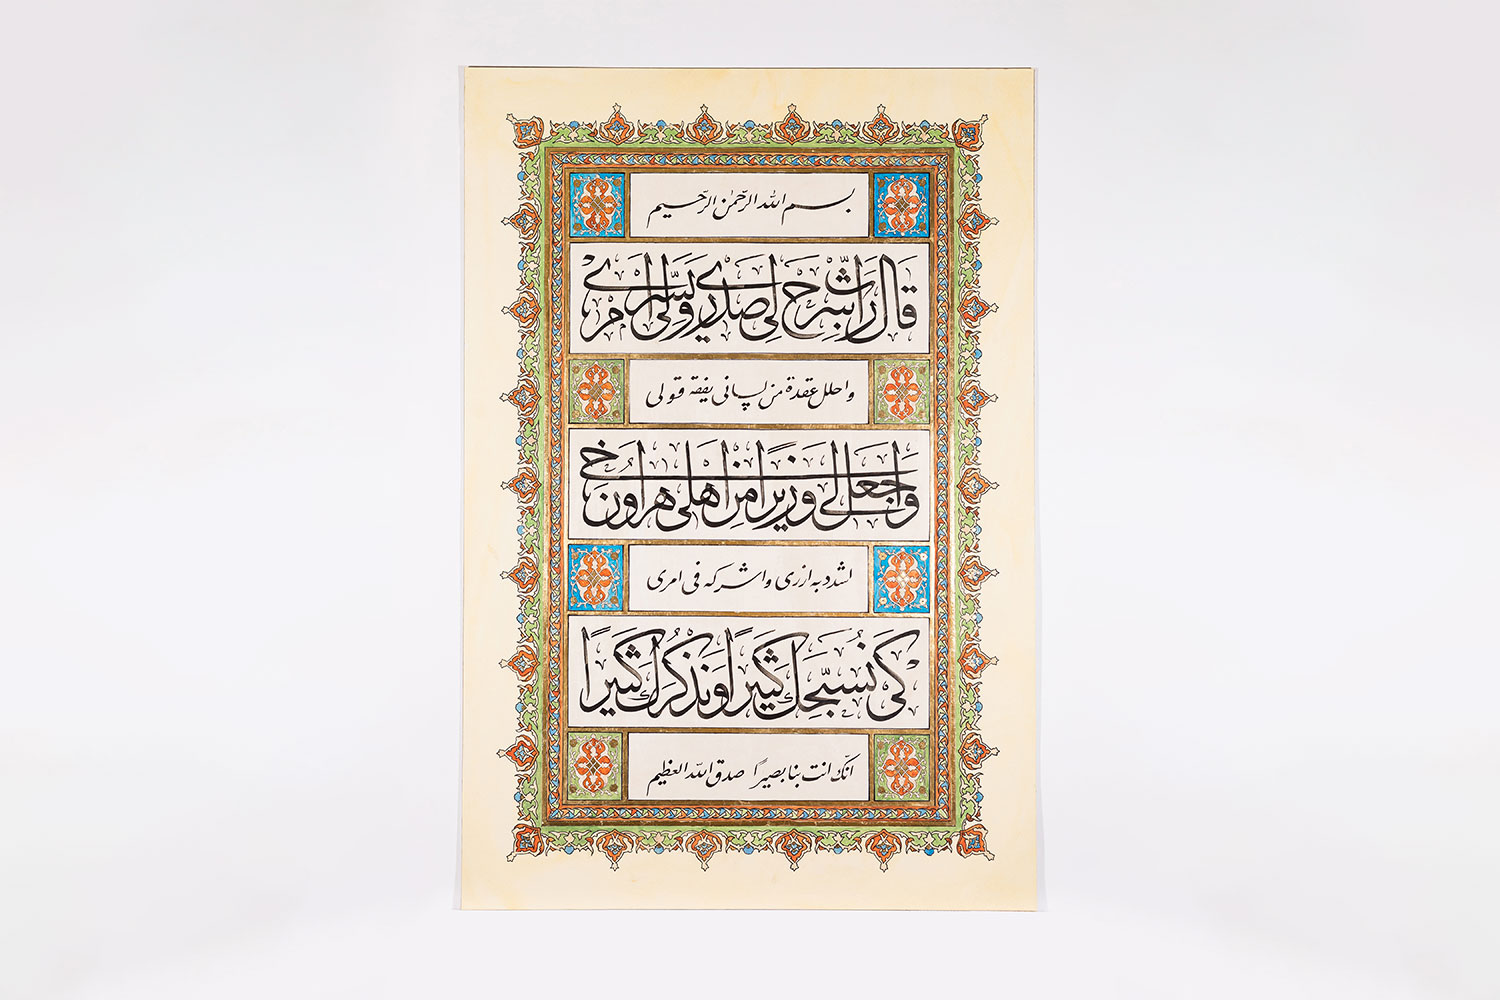 بسم الله الرّحمٰن الرّحيم
قَالَ رَبِّ اشْرَحْ لِي صَدْرِي وَيَسِّرْ لِي أَمْرِي
واحلل عقدة من لسانی یفقه قولی
وَاجْعَل لِي وَزِيرًا مِنْ أَهْلِي هَرُونَ أَخِي
اشدد به ازری واشرکه فی امری
كَيْ نُسَبِّحَكَ كَثِيرًا وَنَذْكُرَكَ كَثِيرًا
انّك انت بنا بصيرًا صدق الله العظیم